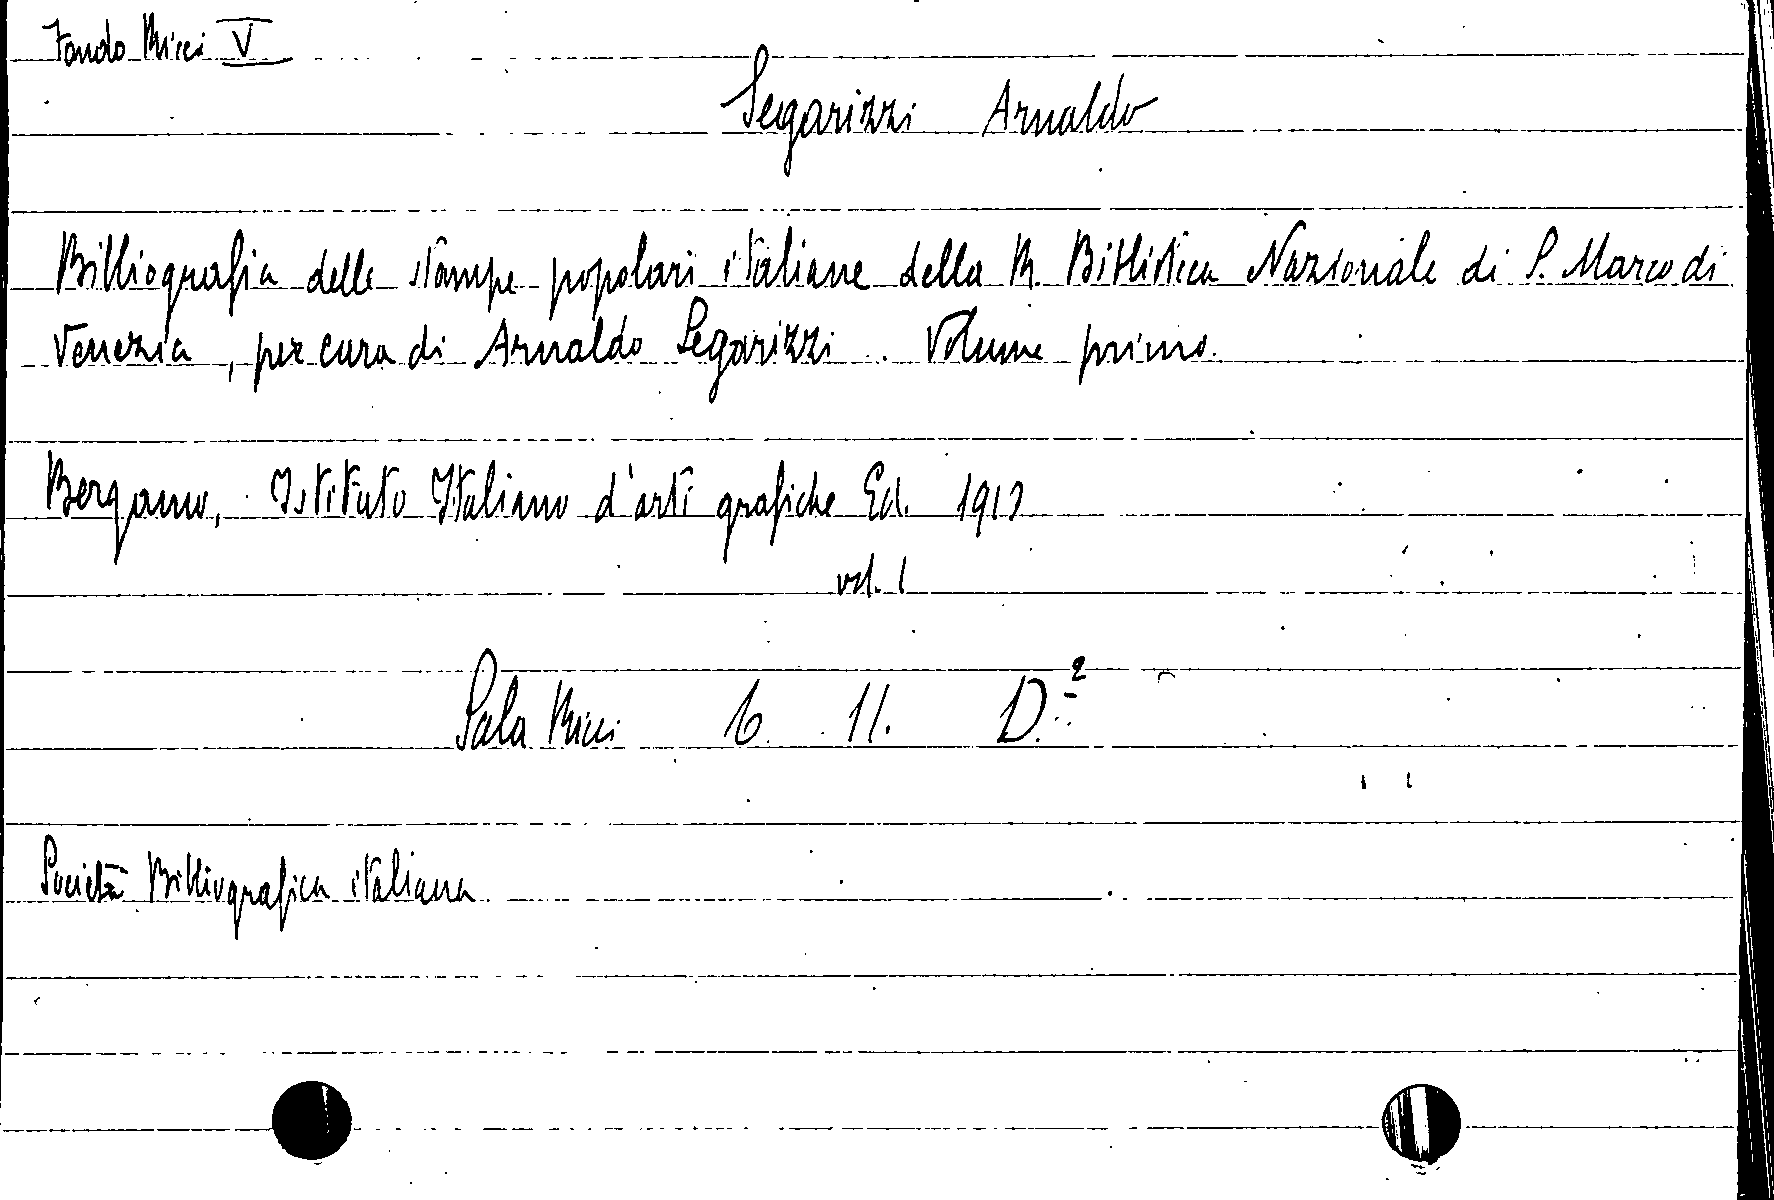 Fondo Ricci V
Segarizzi Arnaldo
Bibliografia delle stampe popolari italiane della R. Biblioteca Nazionale di S. Marco di
Venezia, per cura di Arnaldo Segarizzi. Volume primo.
Bergamo, Istituto Italiano d'arti grafiche Ed. 1913
vol. 1
Sala Ricci 6. 11. D.²
Società Bibliografica italiana